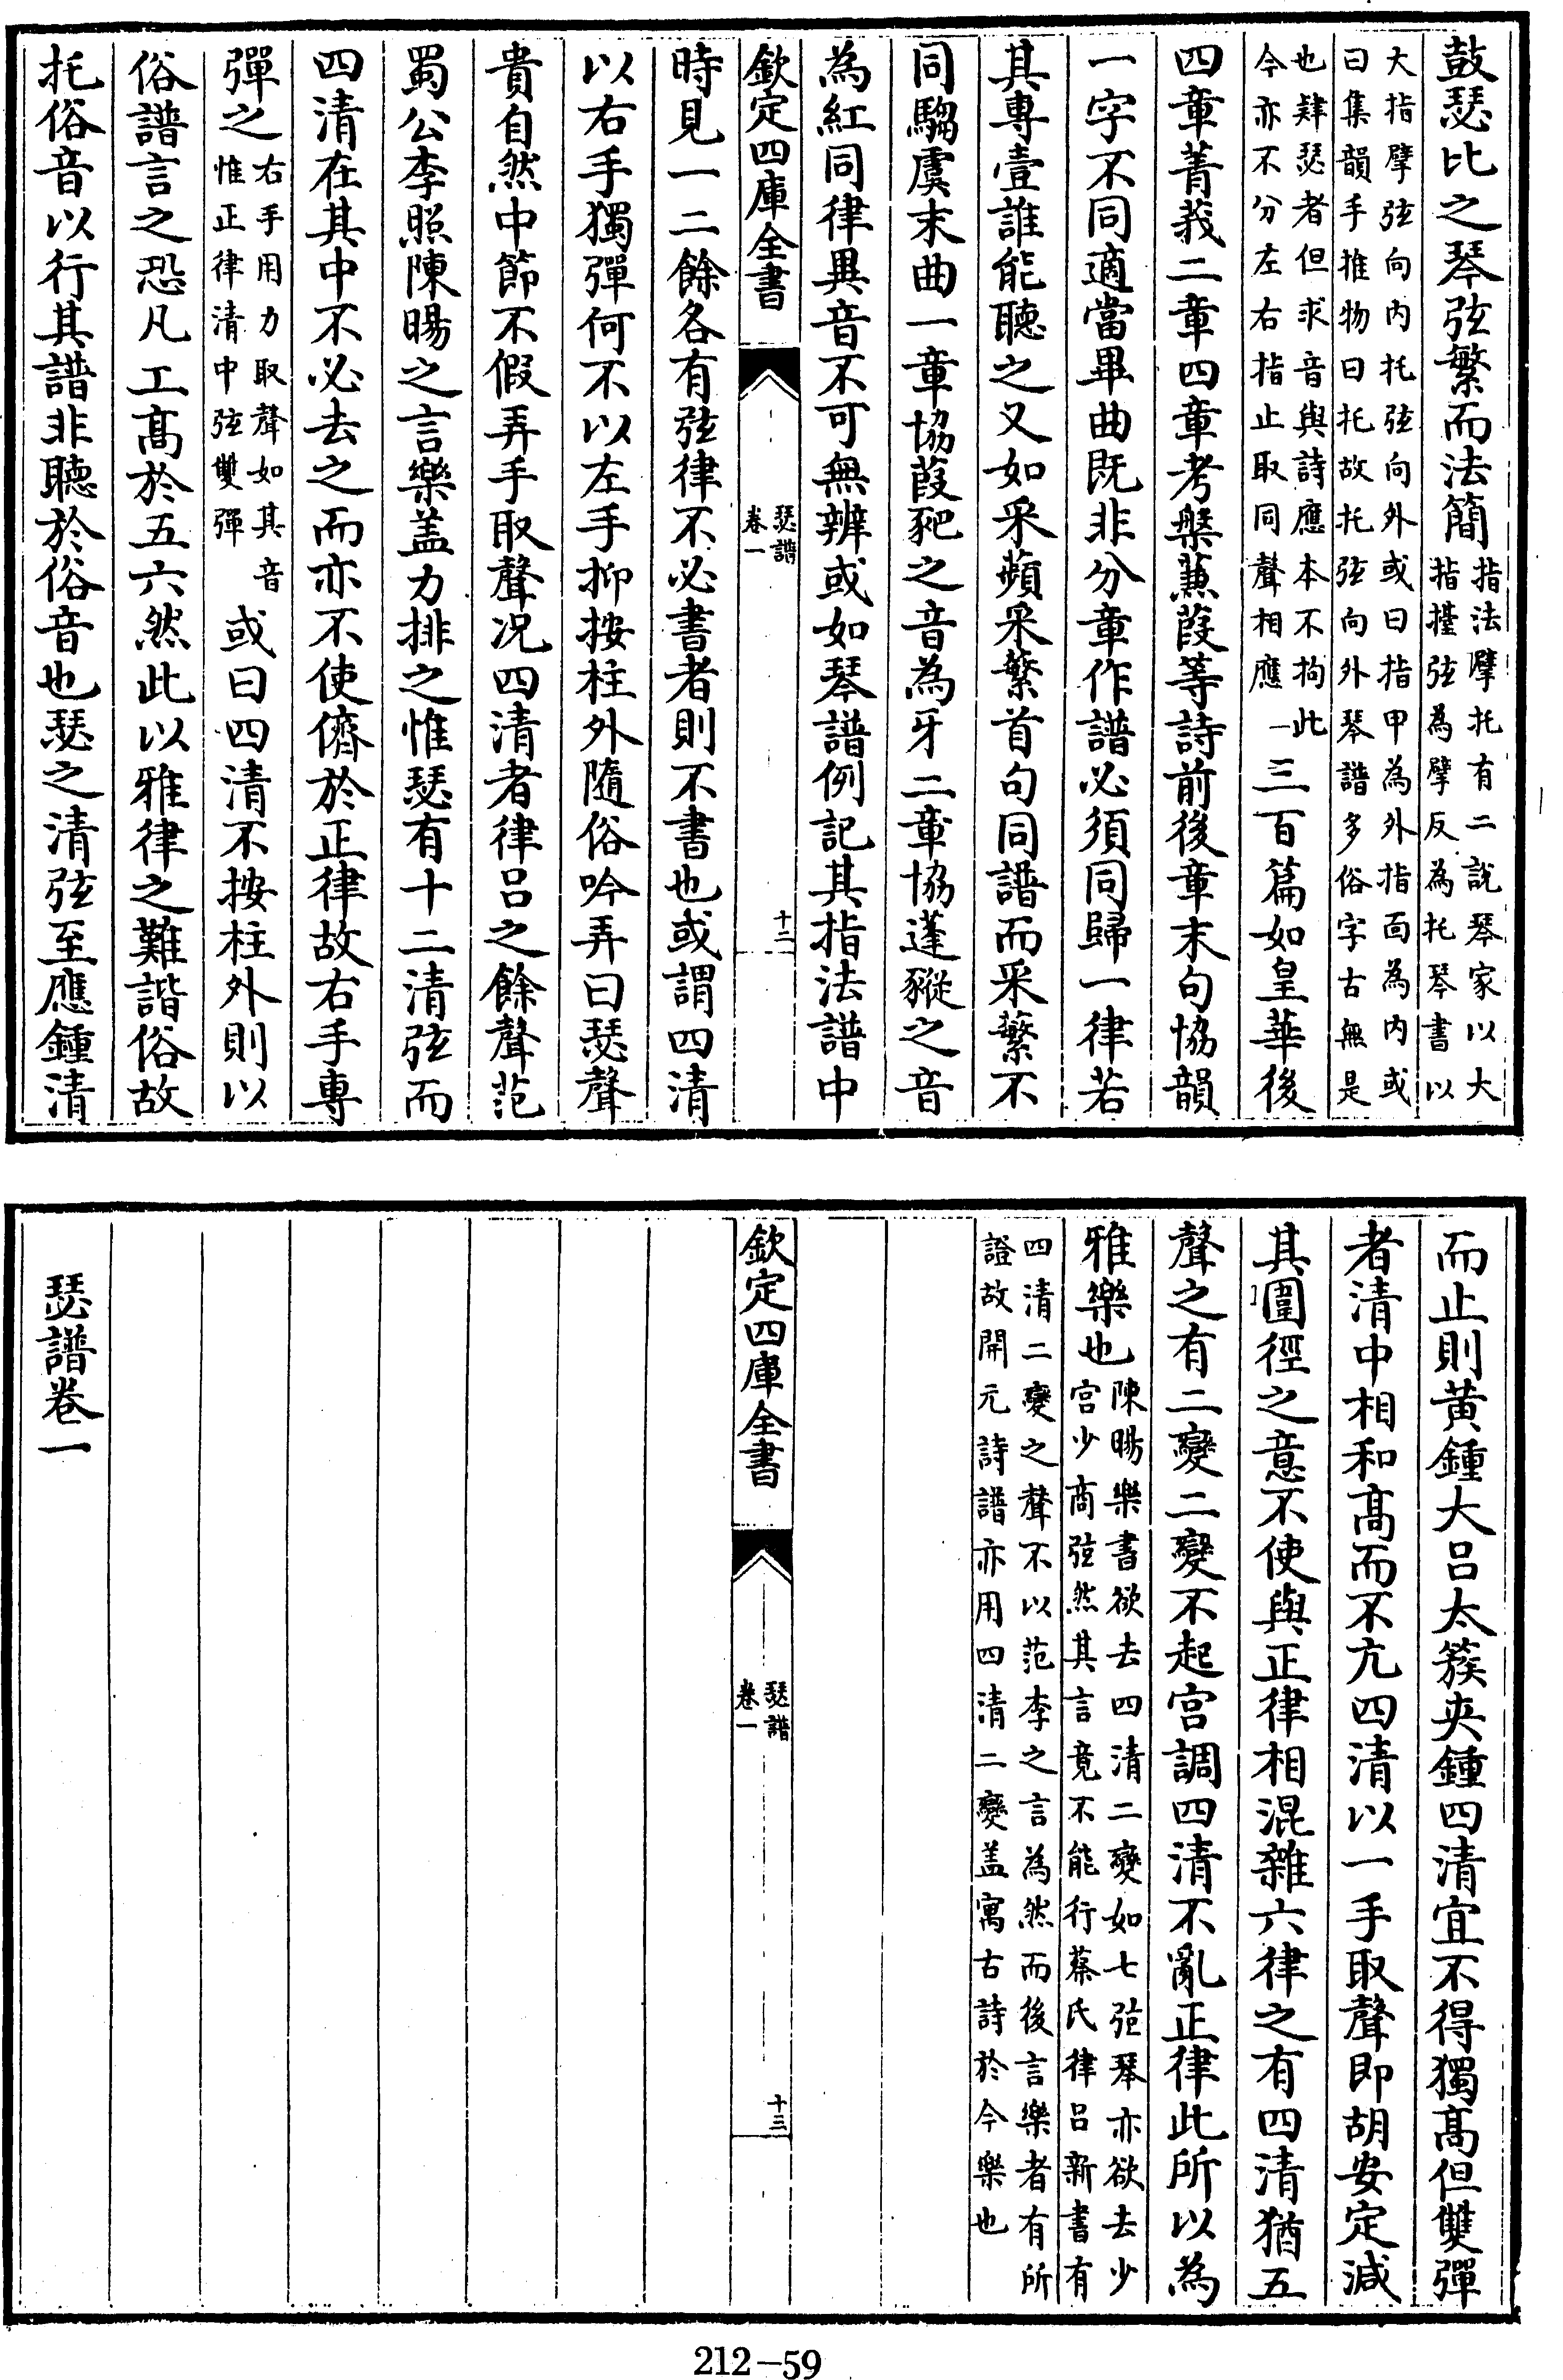 鼓瑟比之琴弦繁而法簡指法擘托有二說琴家以大
指擡弦為擘反為托琴書以
大指擘弦向内托弦向外或曰指甲為外指面為内或
曰集韻手推物曰托故托弦向外琴譜多俗字古無是
也肄瑟者但求音與詩應本不拘此
今亦不分左右指止取同聲相應一三百篇如皇華後
四章菁莪二章四章考槃蒹葭等詩前後章末句協韻
一字不同適當畢曲既非分章作譜必須同歸一律若
其專壹誰能聽之又如采蘋采蘩首句同譜而采蘩不
同騶虞末曲一章協葭豝之音為牙二章協蓬豵之音
為紅同律異音不可無辨或如琴譜例記其指法譜中
欽定四庫全書
瑟譜
卷一
十二
時見一二餘各有弦律不必書者則不書也或謂四清
以右手獨彈何不以左手抑按柱外隨俗吟弄曰瑟聲
貴自然中節不假弄手取聲况四清者律呂之餘聲范
蜀公李照陳暘之言樂盖力排之惟瑟有十二清弦而
四清在其中不必去之而亦不使儕於正律故右手專
彈之右手用力取聲如其音
惟正律清中弦雙彈或曰四清不按柱外則以
俗譜言之恐凡工髙於五六然此以雅律之難諧俗故
托俗音以行其譜非聽於俗音也瑟之清弦至應鍾清
而止則黄鍾大呂太簇夾鍾四清宜不得獨髙但雙彈
者清中相和髙而不亢四清以一手取聲即胡安定減
其圍徑之意不使與正律相混雜六律之有四清猶五
聲之有二變二變不起宫調四清不亂正律此所以為
雅樂也陳暘樂書欲去四清二變如七弦琴亦欲去少
宫少商弦然其言竟不能行蔡氏律呂新書有
四清二變之聲不以范李之言為然而後言樂者有所
證故開元詩譜亦用四清二變盖寓古詩於今樂也
欽定四庫全書
瑟譜
卷一
十三
瑟譜卷一
212-59